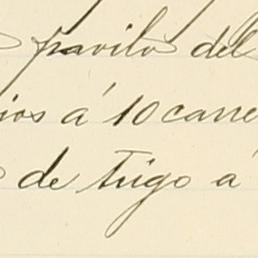 pavilo del
ios á 10 carre
de trigo á